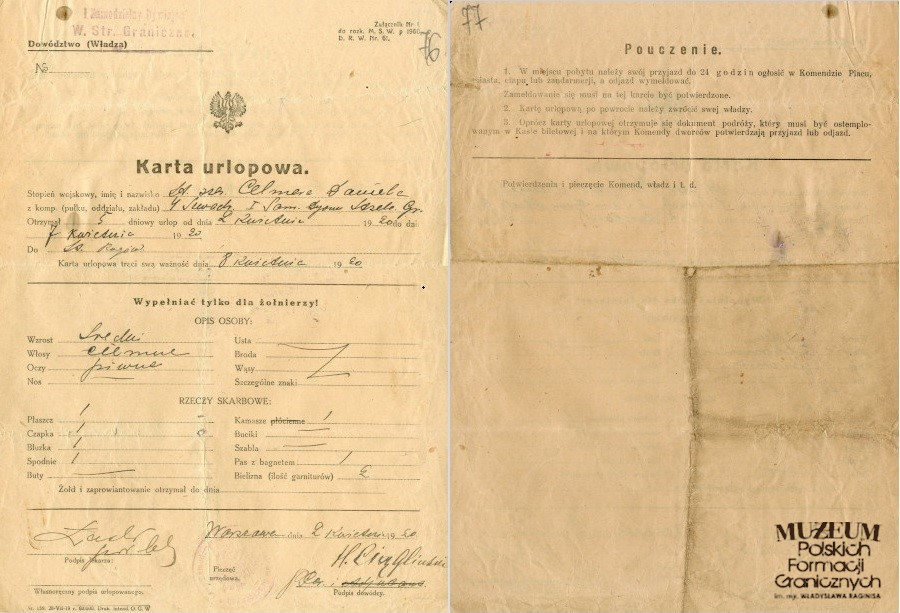 W. Str. Graniczne.
Dowództwo (Władza)
Załącznik Nr 1
do rozk. M. S. W. p 1960
D. R. W. Nr. 61.
76
№
Karta urlopowa.
Stopień wojskowy, imię i nazwisko St. szer. Celmer Daniel
z komp. (pułku, oddziału, zakładu) 4 I Gr.
Otrzymał 5 dniowy urlop od dnia 2 Kwietnia 1920 do dnia
7 Kwietnia 1920
Do St.
Karta urlopowa traci swą ważność dnia 8 Kwietnia 1920
Wypełniać tylko dla żołnierzy!
OPIS OSOBY:
Wzrost Średni
Włosy ciemne
Oczy piwne
Nos
Usta
Broda
Wąsy
Szczególne znaki
RZECZY SKARBOWE:
Płaszcz 1
Czapka 1
Bluzka 1
Spodnie 1
Buty
Kamasze płócienne 1
Buciki
Szabla
Pas z bagnetem 1
Bielizna (ilość garniturów) 2
Żołd i zaprowiantowanie otrzymał do dnia
Podpis lekarza:
Warszawa dnia 2 Kwietnia 1920
Pieczęć
urzędowa.
Podpis dowódcy.
Własnoręczny podpis urlopowanego.
77
Pouczenie.
1. W miejscu pobytu należy swój przyjazd do 24 godzin ogłosić w Komendzie Placu,
miasta, etapu lub żandarmerji, a odjazd wymeldować.
Zameldowanie się musi na tej karcie być potwierdzone.
2. Kartę urlopową po powrocie należy zwrócić swej władzy.
3. Oprócz karty urlopowej otrzymuje się dokument podróży, który musi być ostemplo-
wanym w Kasie biletowej i na którym Komendy dworców potwierdzają przyjazd lub odjazd.
Potwierdzenia i pieczęcie Komend, władz i t. d.
MUZEUM
Polskich
Formacji
Granicznych
im. mjr. WŁADYSŁAWA RAGINISA